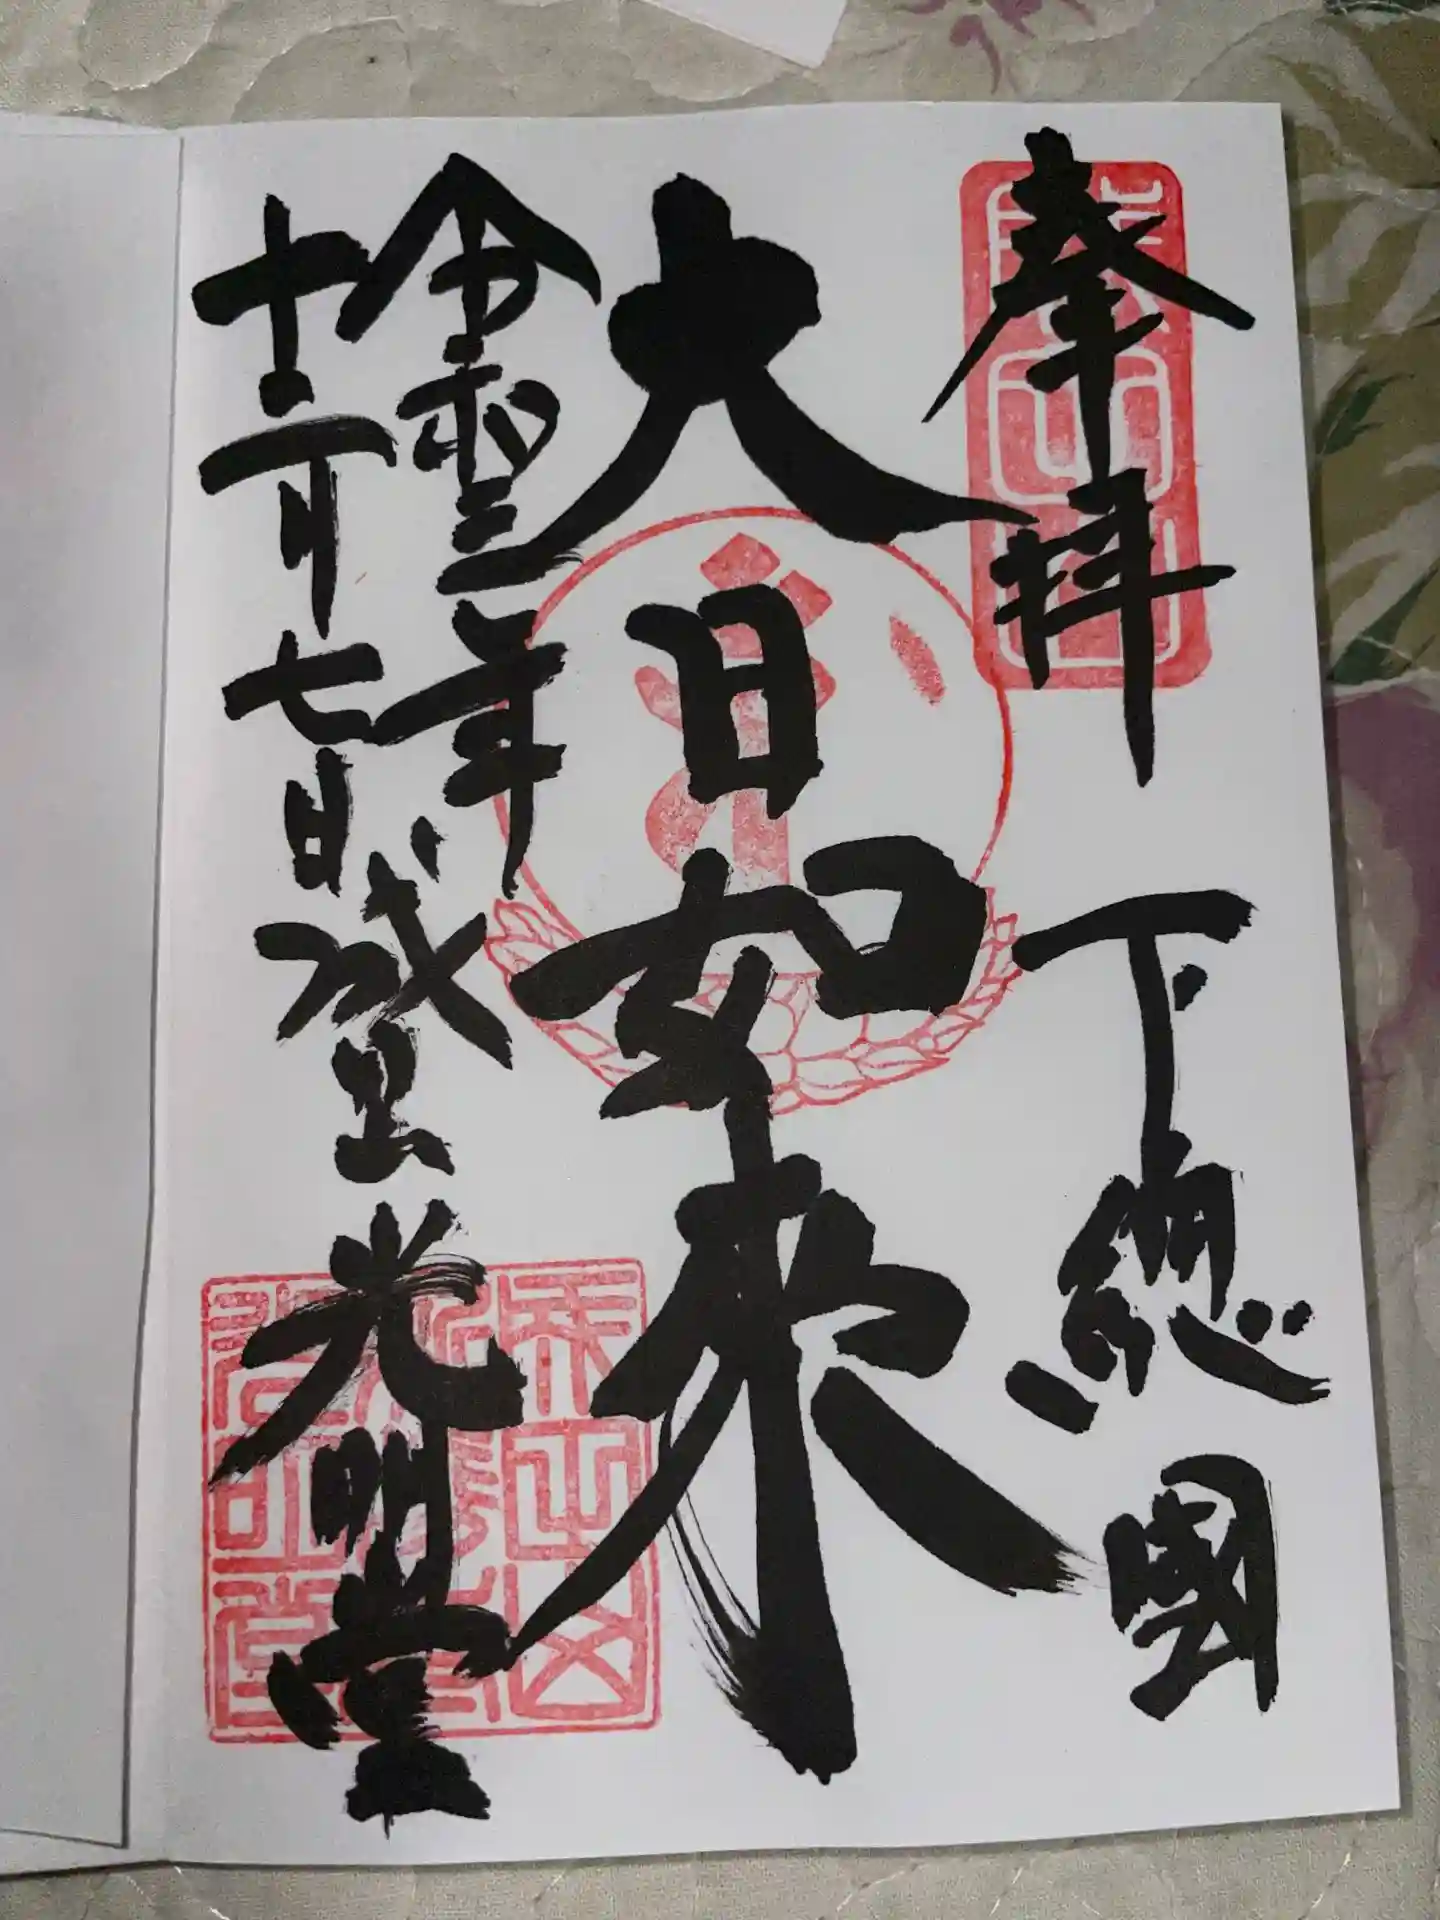 奉拝 下總國
大日如来
令和三年
十二月七日
成田山 光明堂